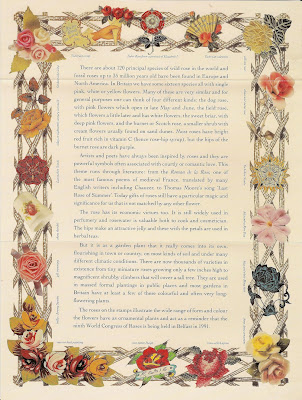 There are about 120 principal species of wild rose in the world and
fossil roses up to 26 million years old have been found in Europe and
North America. In Britain we have some sixteen species all with single
pink, white or yellow flowers. Many of these are very similar and for
general purposes one can think of four different kinds; the dog rose,
with pink flowers which open in late May and June, the field rose,
which flowers a little later and has white flowers, the sweet briar, with
deep pink flowers, and the burnet or Scotch rose, a smaller shrub with
cream flowers usually found on sand dunes. Most roses have bright
red fruit rich in vitamin C (hence rose-hip syrup), but the hips of the
burnet rose are dark purple.
Artists and poets have always been inspired by roses and they are
powerful symbols often associated with county or romantic love. This
theme runs through literature: from the Roman de la Rose, one of
the most famous poems of medieval France, translated by many
English writers including Chaucer, to Thomas Moore's song 'Last
Rose of Summer'. Today gifts of roses still have a particular magic and
significance for us that is not matched by any other flower.
The rose has its economic virtues too. It is still widely used in
perfumery and rosewater is valuable both in scents and cosmetics.
The hips make an attractive jelly and these with the petals are used in
herbal teas.
But it is as a garden plant that it really comes into its own,
flourishing in town or country, on most kinds of soil and under many
different climatic conditions. There are now thousands of varieties in
existence from tiny miniature roses growing only a few inches high to
magnificent shrubby climbers that will cover a tall tree. They are used
in massed formal plantings in public places and most gardens in
Britain have at least a few of these colourful and often very long-
flowering plants.
The roses on the stamps illustrate the wide range of form and colour
the flowers have as ornamental plants and act as a reminder that the
ninth World Congress of Roses is being held in Belfast in 1991.